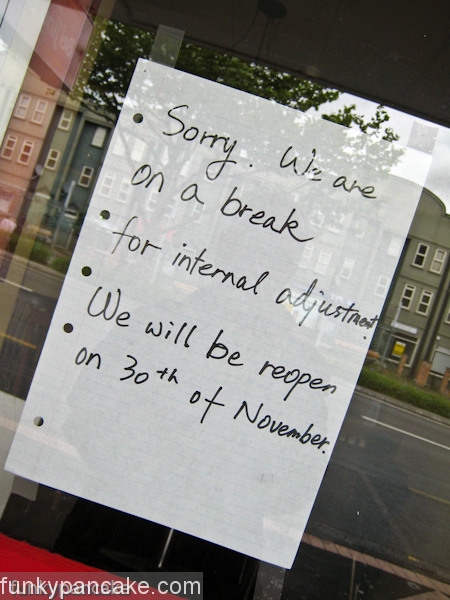 Sorry. We are
on a break
for internal adjustment.
We will be reopen
on 30th of November.
funkypancake.com